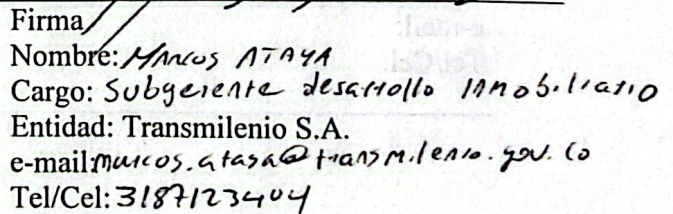 Firma
Nombre: Marcos ATAYA
Cargo: Subgerente desarrollo inmobiliario
Entidad: Transmilenio S.A.
e-mail: marcos.ataya@transmilenio.gov.co
Tel/Cel: 3187123404